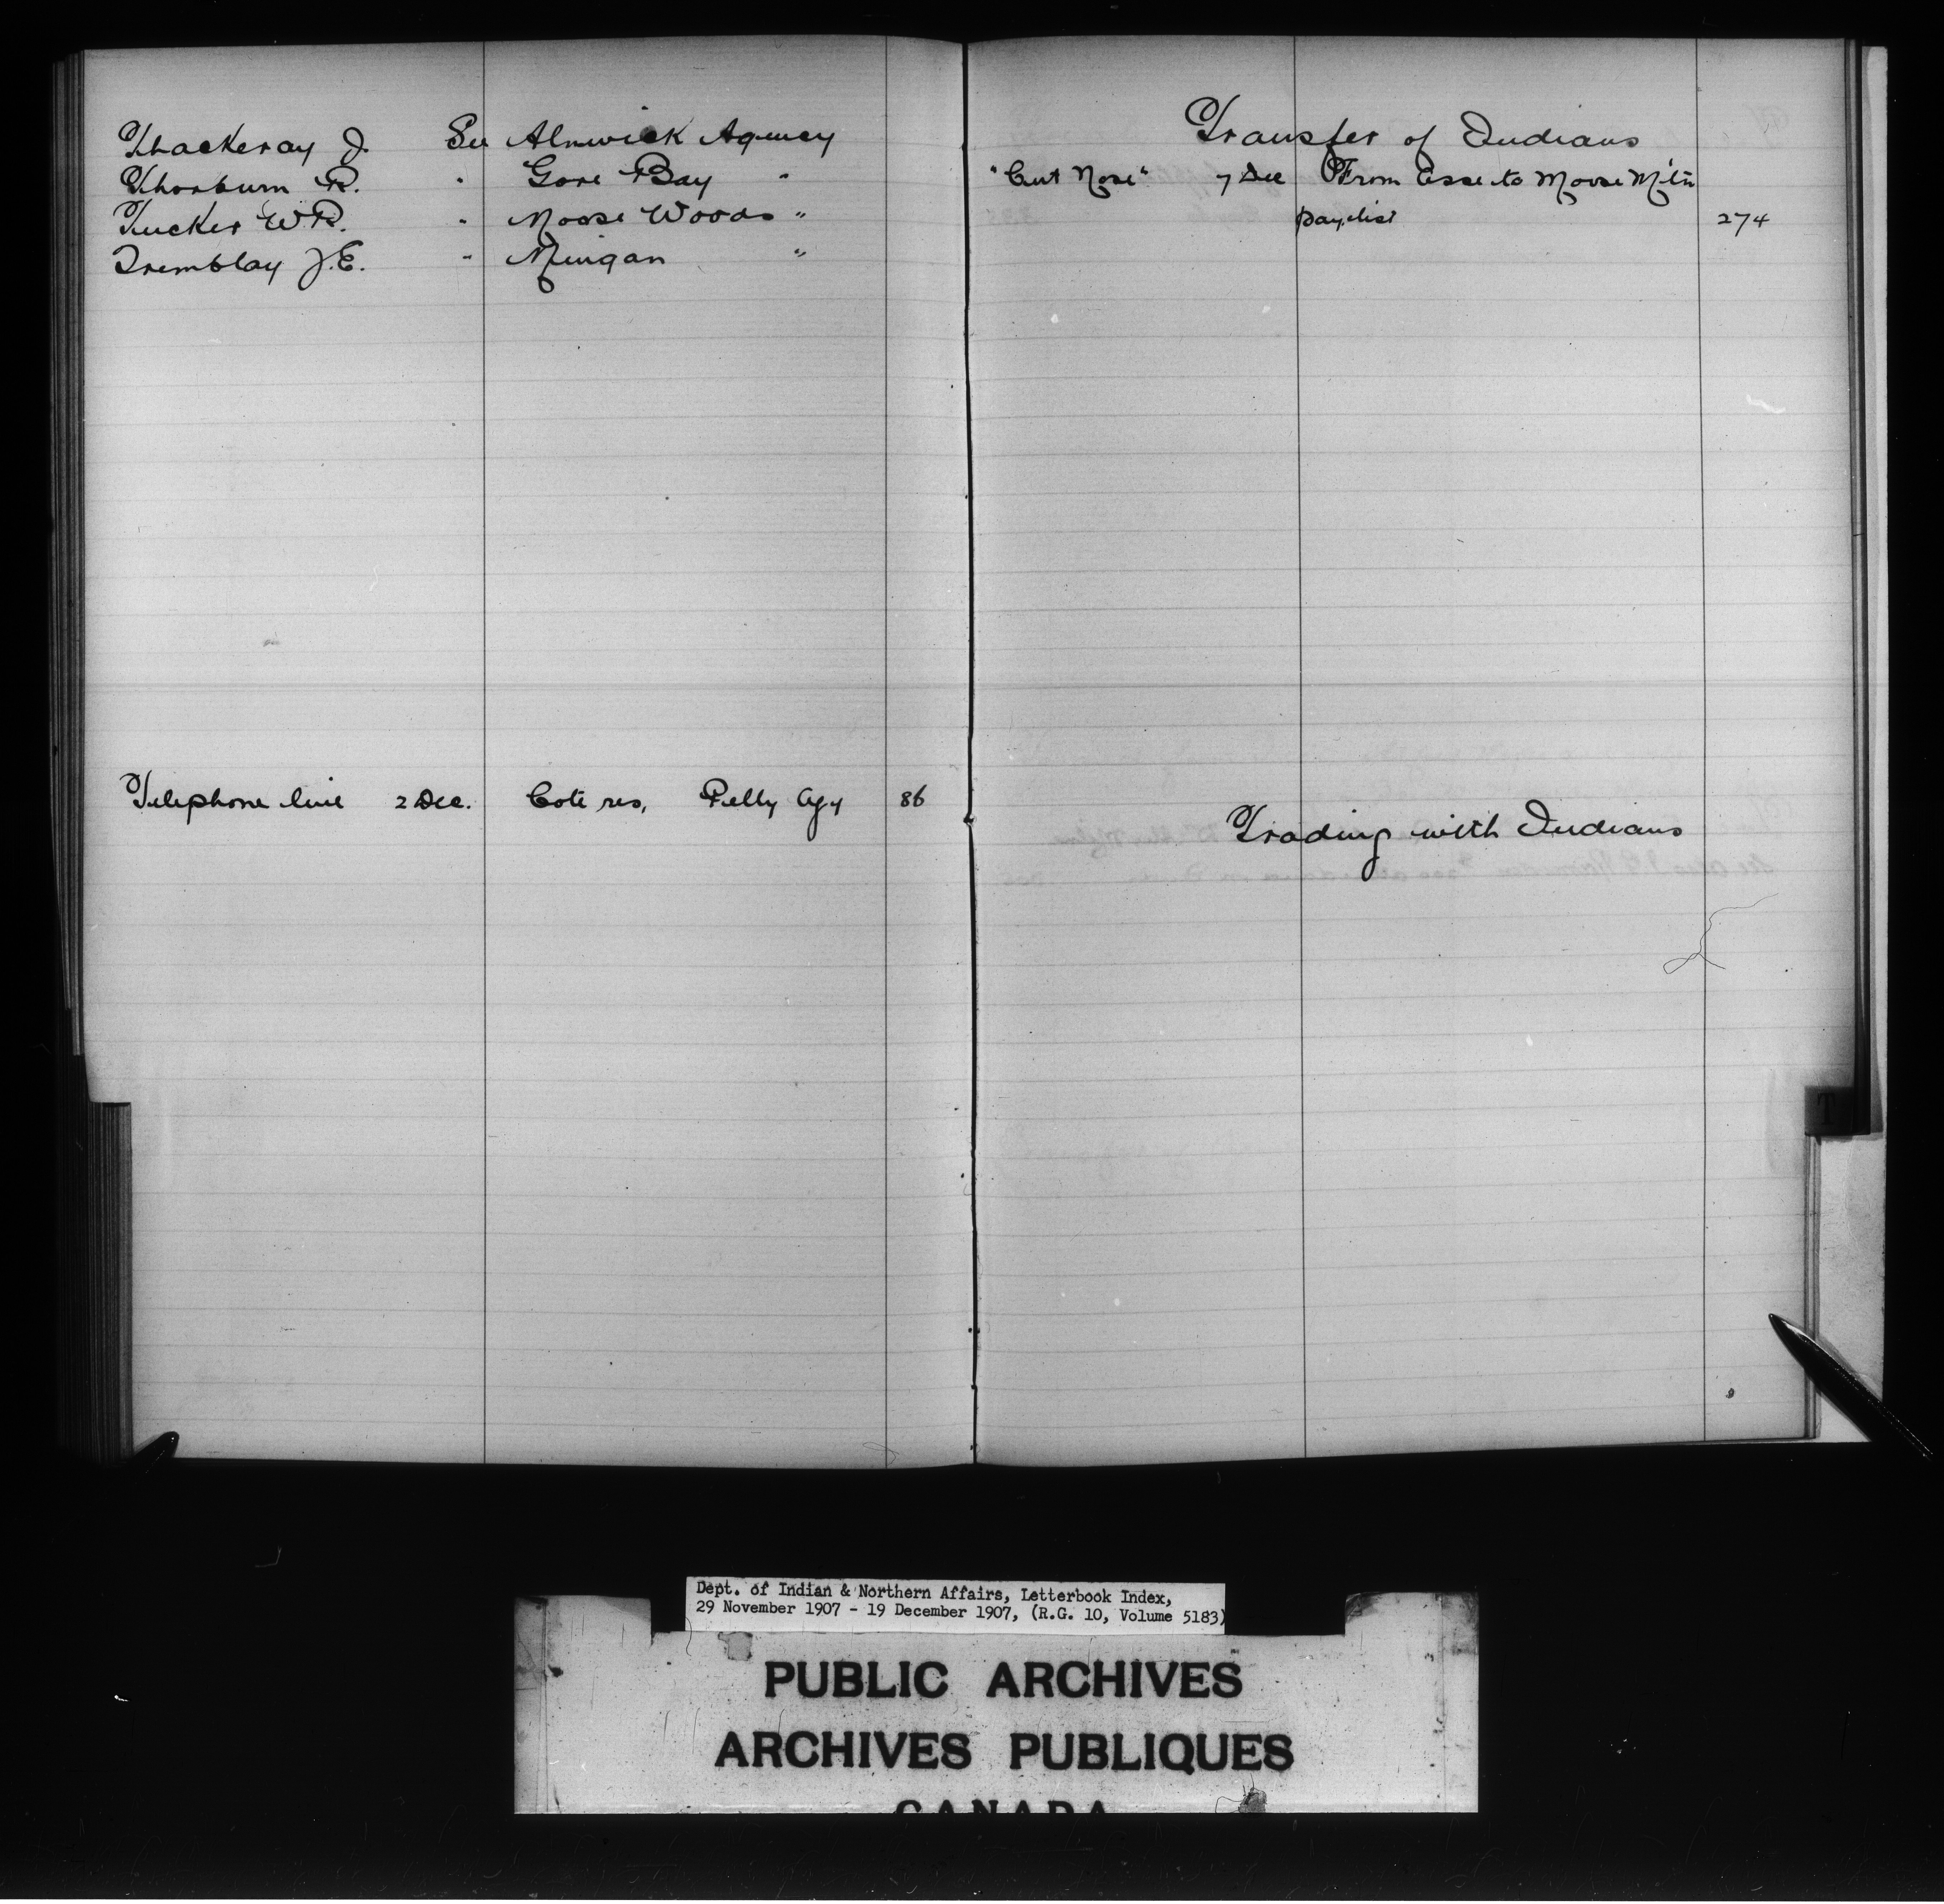 Thackeray J. See Alnwick Agency
Thorburn R. " Gore Bay "
Tucker W R. " Moose Woods "
Tremblay J.E. " Mingan "
Telephone line 2 Dec. Cote res, Pelly Agy 86
Transfer of Indians
"Cut Nose" 7 Dec From Asse to Moose Mtn
paylist 274
Trading with Indians
T
Dept. of Indian & Northern Affairs, Letterbook Index,
29 November 1907 - 19 December 1907, (R.G. 10, Volume 5183)
PUBLIC ARCHIVES
ARCHIVES PUBLIQUES
CANADA